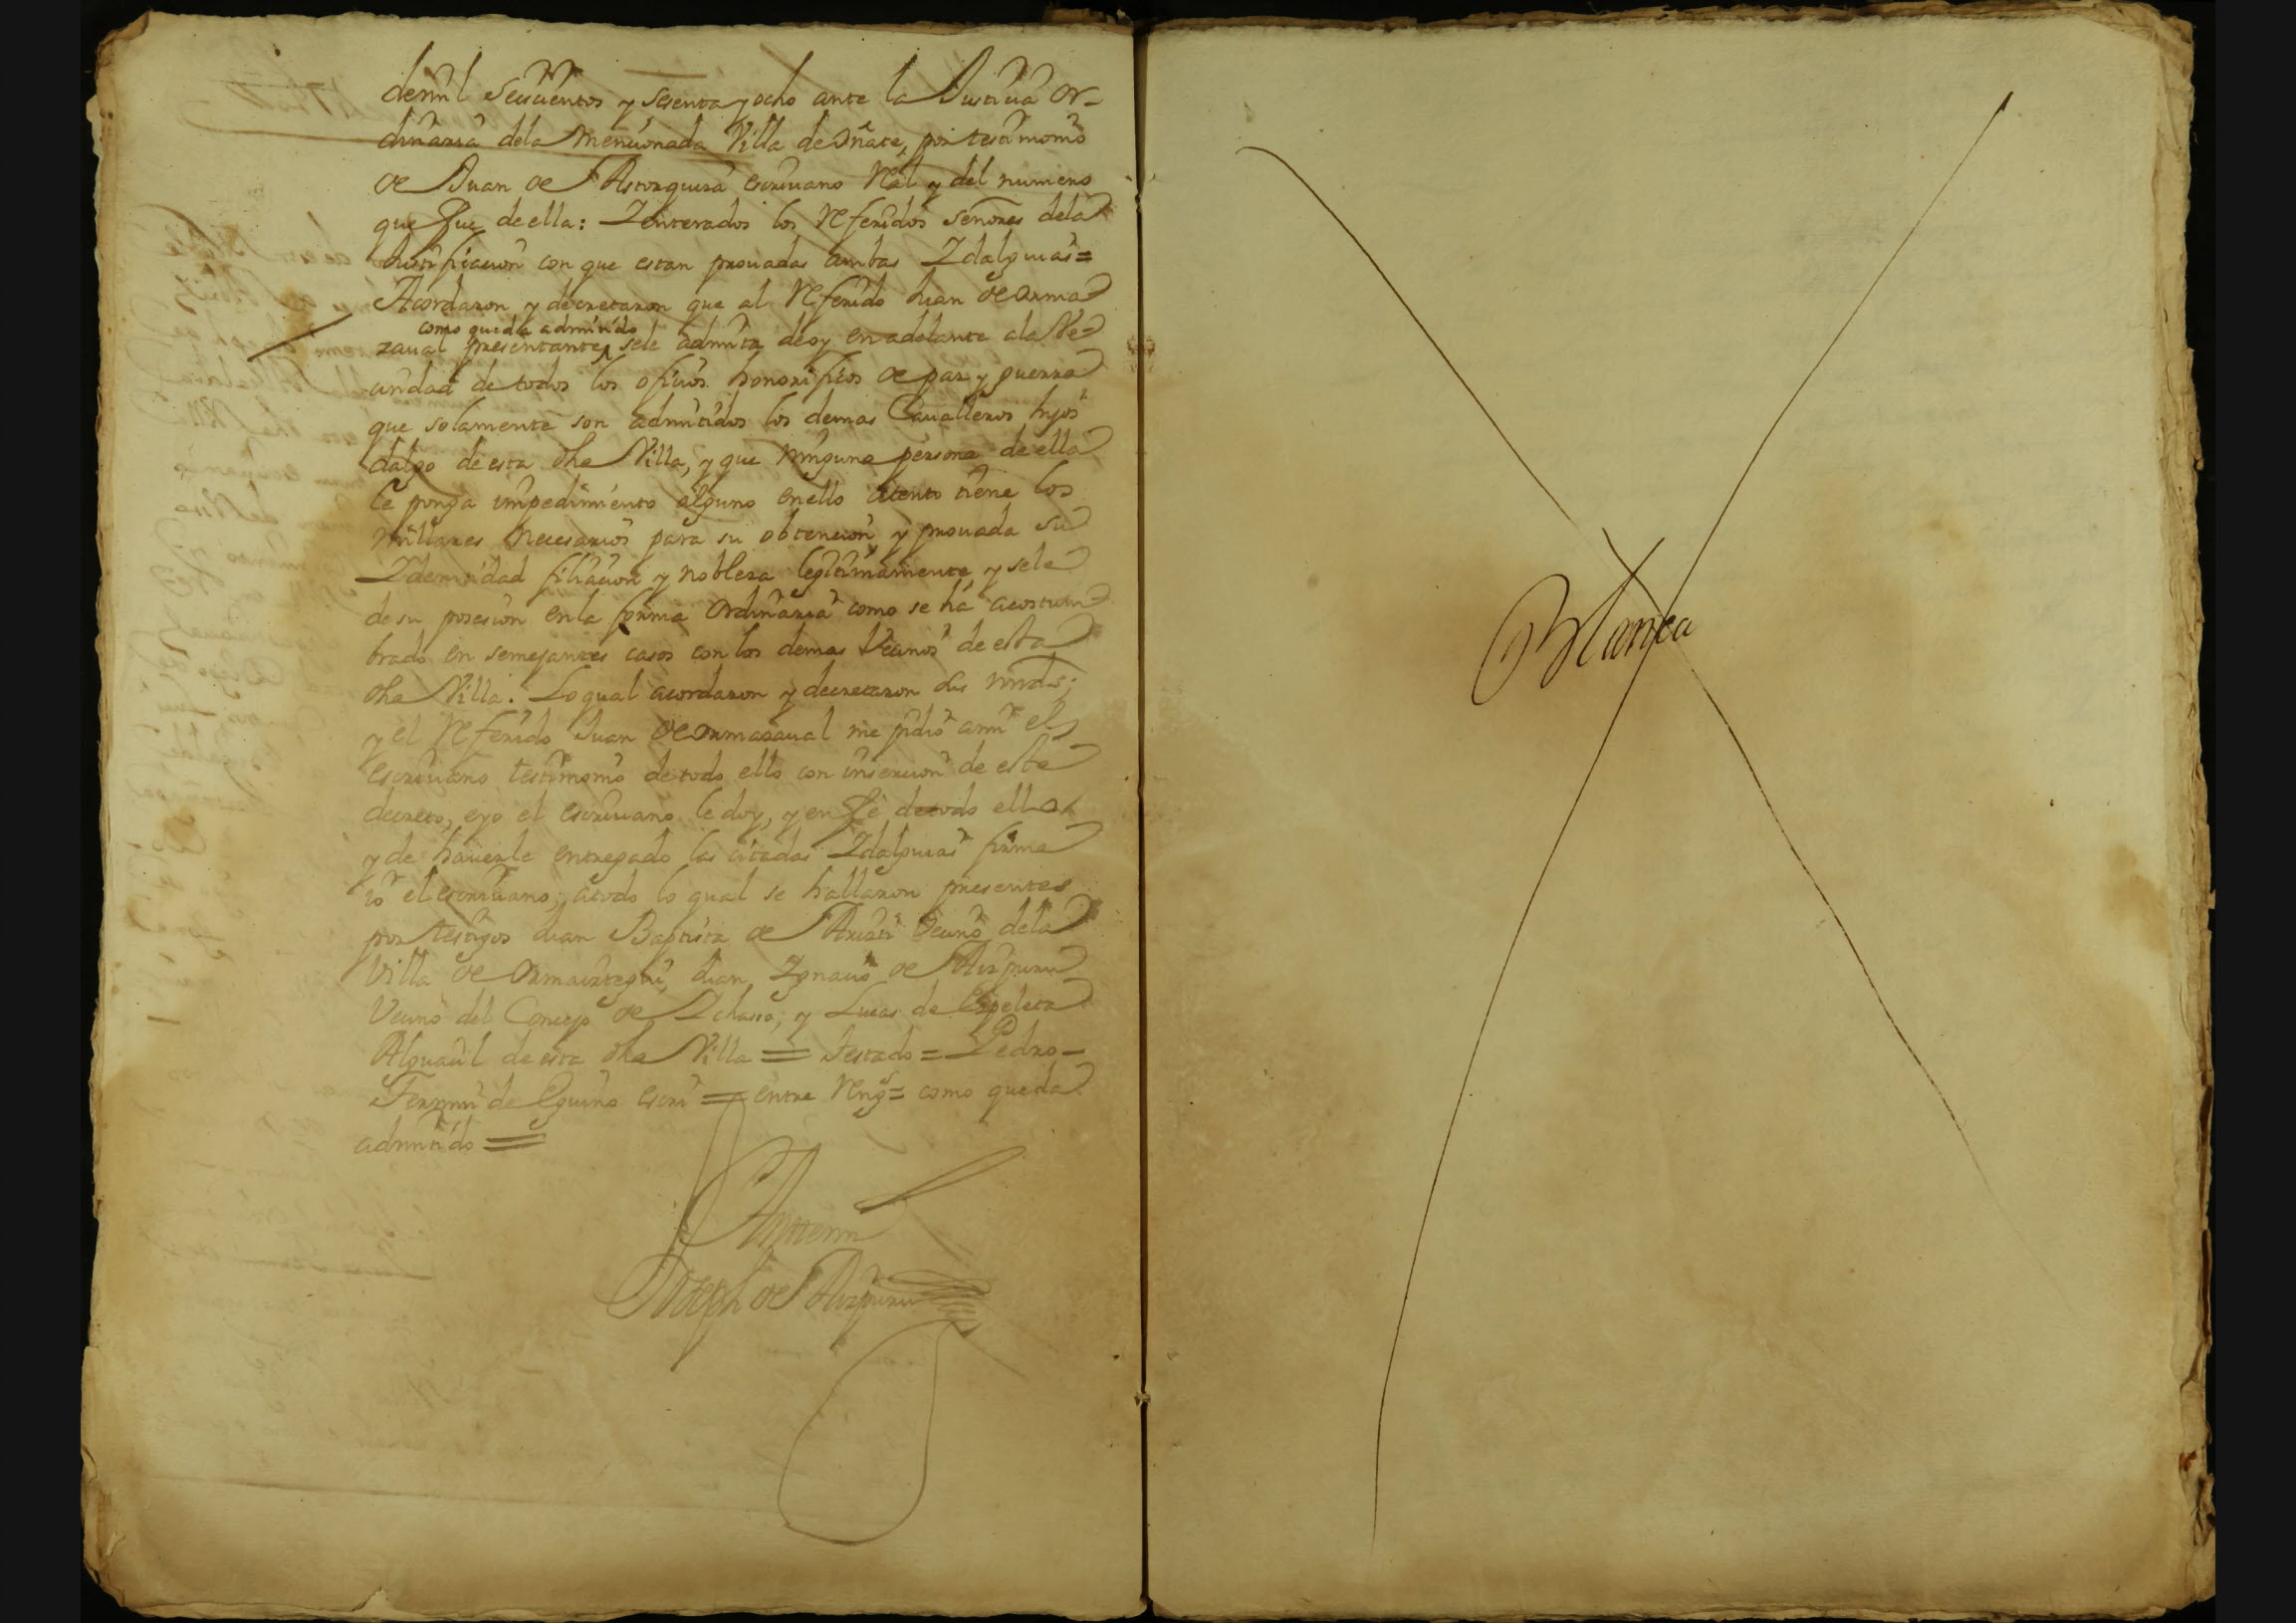 demil Seiscientos y sesenta y ocho ante la Justicia Or-
dinaria dela mencionada Villa de oñate, por testimonio
de Juan de Astorquiza escriuano Rēal y del numero
que fue de ella: Ienterados los Referidos señores dela
Justificacion con que estan prouadas ambas Idalguias=
Acordaron y decretaron que al Referido Juan de orma
como queda admitido
zaual presentante, sele admita de oy en adelante ala Ve-
cindad de todos los oficios honorificos de paz y guerra
que solamente son admitidos los demas Caualleros hijos
dalgo de esta dha Villa, y que ninguna persona de ella
le ponga impedimiento alguno enello atento tiene los
millares necesarios para su obtencion, y prouada su
Idemtidad filiacion y nobleza legitimamente, y sele
de su posesion enla forma Ordinaria como se há acostum
brado en semejantes casos con los demas Vecinos de esta
dha Villa. Lo qual acordaron y decretaron dhs
y el Referido Juan de ormazaual me pidio ami el
escriuano testimonio de todo ello con insercion de este
decreto, eyo el escriuano le doy, y en fè detodo ello
y de hauerle entregado las citadas Idalguias firme
io el escriuano; atodo lo qual se hallaron presentes
por testigos Juan Baptista de Vecino dela
Villa de Ormaiztegui, Juan Ignacio de Aizpuru
Vecino del Concejo de Ichasso, y Lucas de Ezpeleta
Alguacil de esta dha Villa = testado = Pedro-
de Eguino escri = entre Reng.s = como queda
admitido =
Antemi
Joseph de Aizpuru
Blanca